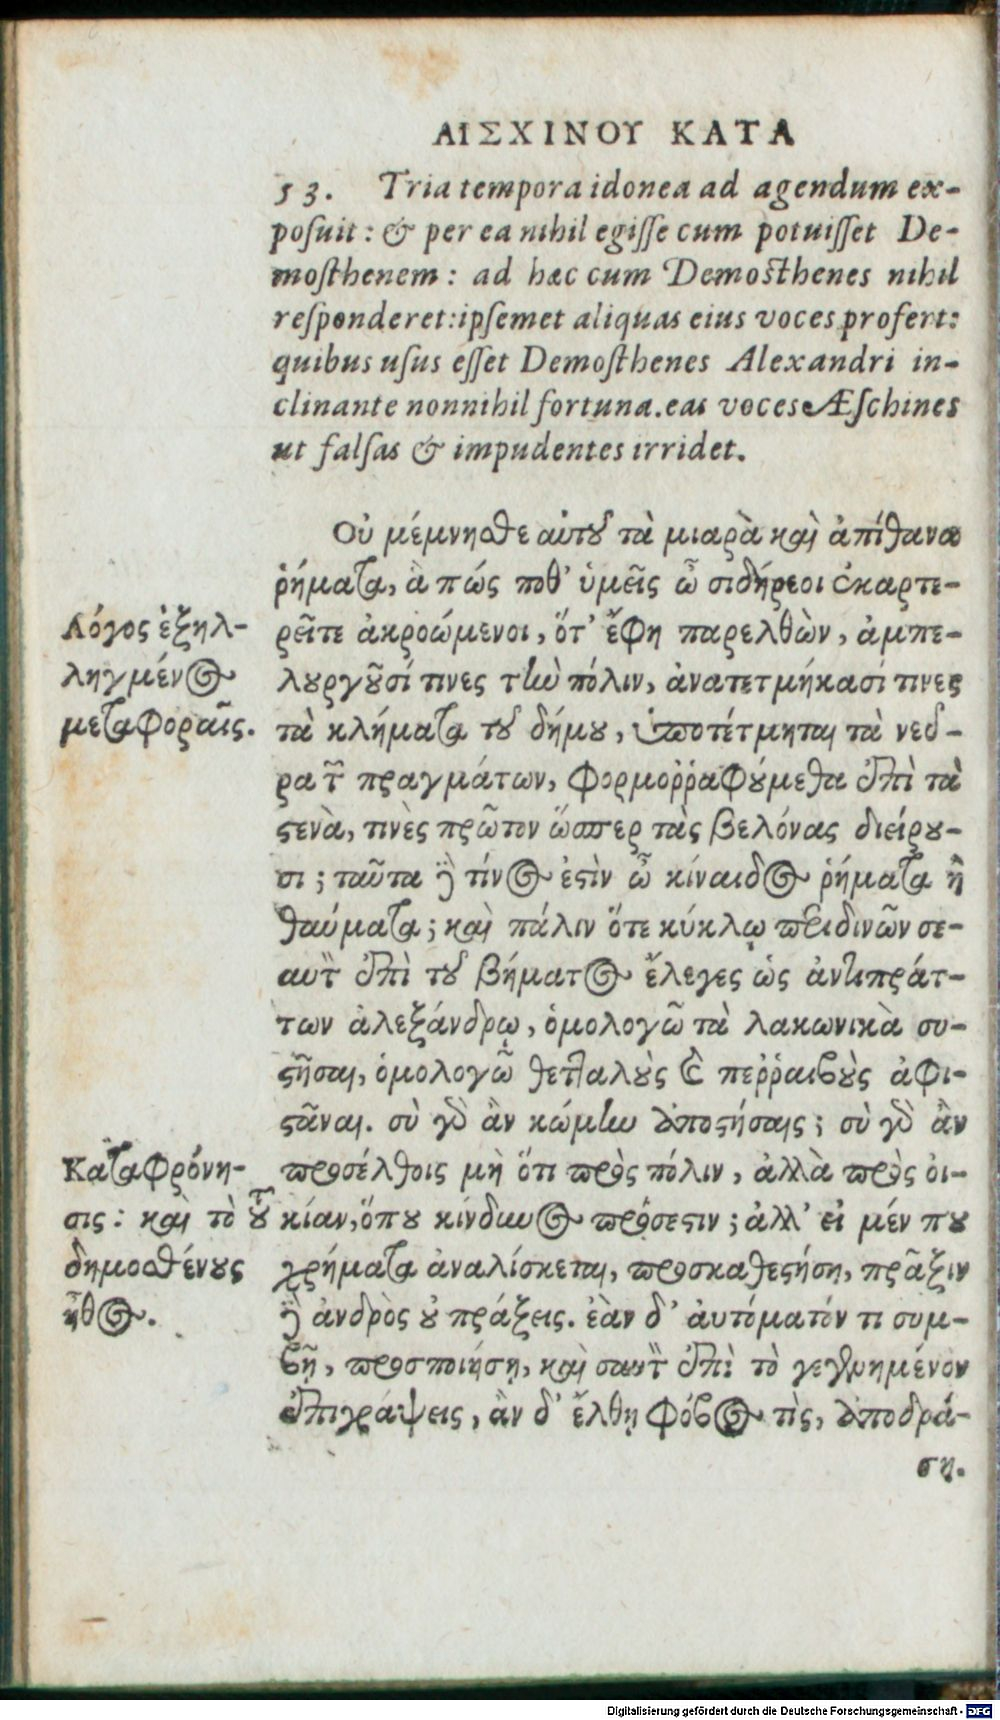 ΑΙΣΧΙΝΟΥ ΚΑΤΑ
53. Tria tempora idonea ad agendum ex-
posuit: & per ea nihil egisse cum potuisset De-
mosthenem: ad hæc cum Demosthenes nihil
responderet: ipsemet aliquas eius voces profert:
quibus usus esset Demosthenes Alexandri in-
clinante nonnihil fortuna. eas voces Æschines
ut falsas & impudentes irridet.
Οὐ μέμνησθε αὐτοῦ τὰ μιαρὰ καὶ ἀπίθανα
ῥήματα, ἃ πώς ποθ' ὑμεῖς ὦ σιδήρεοι ἐκαρτε-
ρεῖτε ἀκροώμενοι, ὅτ' ἔφη παρελθὼν, ἀμπε-
λουργοῦσί τινες τὴν πόλιν, ἀνατετμήκασί τινες
τὰ κλήματα τοῦ δήμου, ὑποτέτμηται τὰ νεῦ-
ρα τῶν πραγμάτων, φορμοῤῥαφούμεθα ἐπὶ τὰ
στενὰ, τινὲς πρῶτον ὥσπερ τὰς βελόνας διείρου-
σι; ταῦτα δὲ τίνος ἐστὶν ὦ κίναιδος ῥήματα ἢ
θαύματα; καὶ πάλιν ὅτε κύκλῳ περιδινῶν σε-
αυτὸν ἐπὶ τοῦ βήματος ἔλεγες ὡς ἀντιπράτ-
των ἀλεξάνδρῳ, ὁμολογῶ τὰ λακωνικὰ συ-
στῆσαι, ὁμολογῶ θετταλοὺς καὶ περῥαιβοὺς ἀφι-
στᾶναι. σὺ γὰρ ἂν κώμην ἀποστήσαις; σὺ γὰρ ἂν
προσέλθοις μὴ ὅτι πρὸς πόλιν, ἀλλὰ πρὸς οἰ-
κίαν, ὅπου κίνδυνος πρόσεστιν; ἀλλ' εἰ μέν που
χρήματα ἀναλίσκεται, προσκαθεστήσῃ, πρᾶξιν
δὲ ἀνδρὸς οὐ πράξεις. ἐὰν δ' αὐτόματόν τι συμ-
βῇ, προσποιήσῃ, καὶ σαυτὸν ἐπὶ τὸ γεγενημένον
ἐπιγράψεις, ἂν δ' ἔλθῃ φόβος τὶς, ἀποδρά-
ση.
Λόγος ἐξηλ-
λαγμένος
μεταφοραῖς.
Καταφρόνη-
σις: καὶ τὸ τοῦ
δημοσθένους
ἦθος.
Digitalisierung gefördert durch die Deutsche Forschungsgemeinschaft - DFG